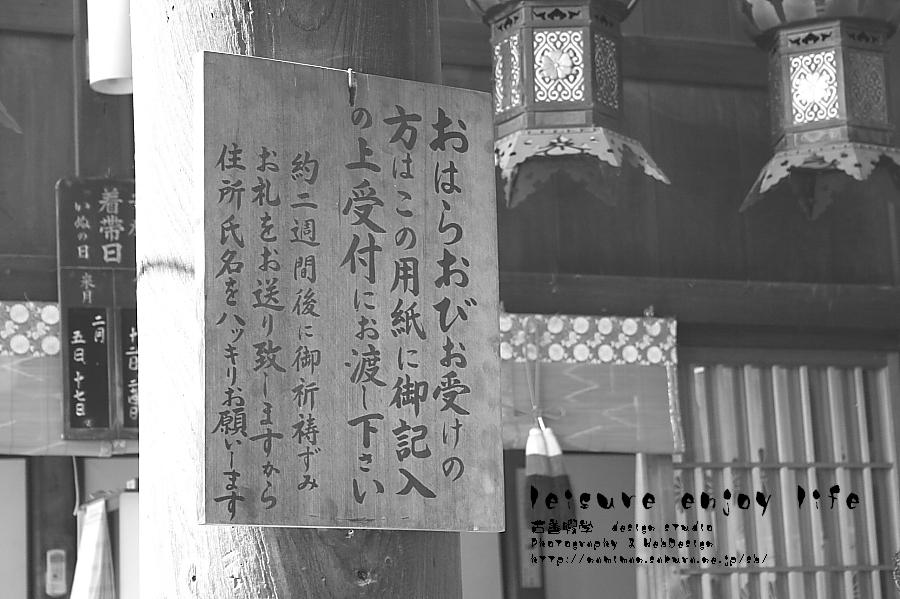 おはらおびお受けの
方はこの用紙に御記入
の上受付にお渡し下さい
約二週間後に御祈祷ずみ
お札をお送り致しますから
住所氏名をハッキリお願いします
着帯日
いぬの日
来月
二月
五日、十七日
leisure enjoy life
design studio
Photography & WebDesign